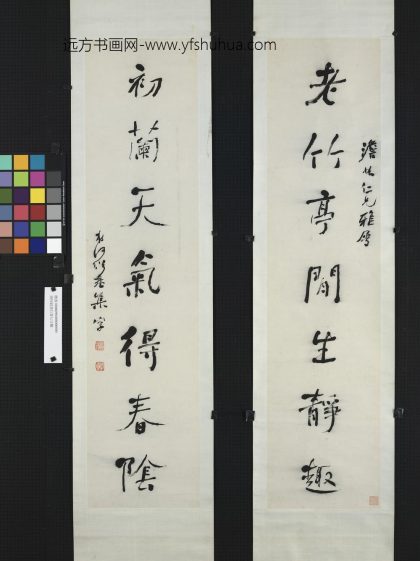 远方书画网-www.yfshuhua.com
老竹亭間生靜趣
澹林仁兄雅屬
初蘭天氣得春陰
集字